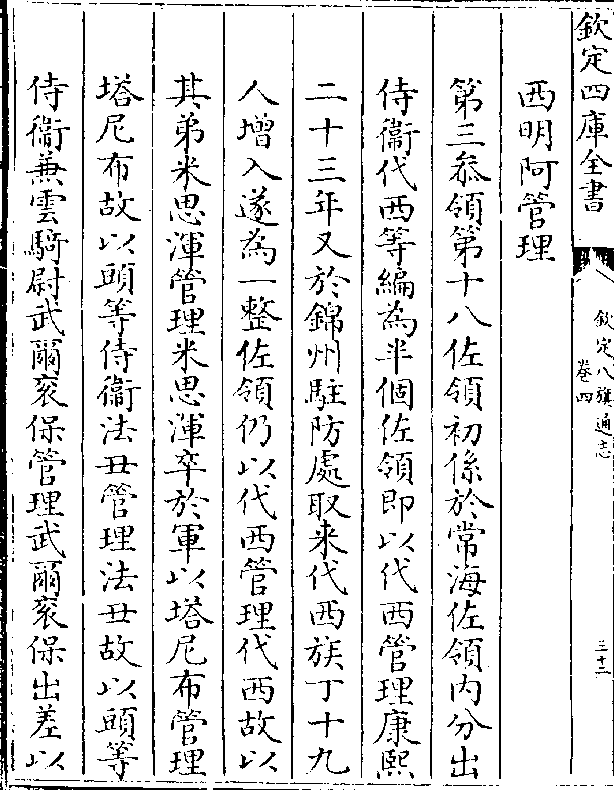 欽定四庫全書
欽定八旗通志
卷四
三十二
西明阿管理
第三叅領第十八佐領初係於常海佐領内分出
侍衞代西等編為半個佐領即以代西管理康熙
二十三年又於錦州駐防處取来代西族丁十九
人增入遂為一整佐領仍以代西管理代西故以
其弟米思渾管理米思渾卒於軍以塔尼布管理
塔尼布故以頭等侍衞法丑管理法丑故以頭等
侍衞兼雲騎尉武爾衮保管理武爾衮保出差以